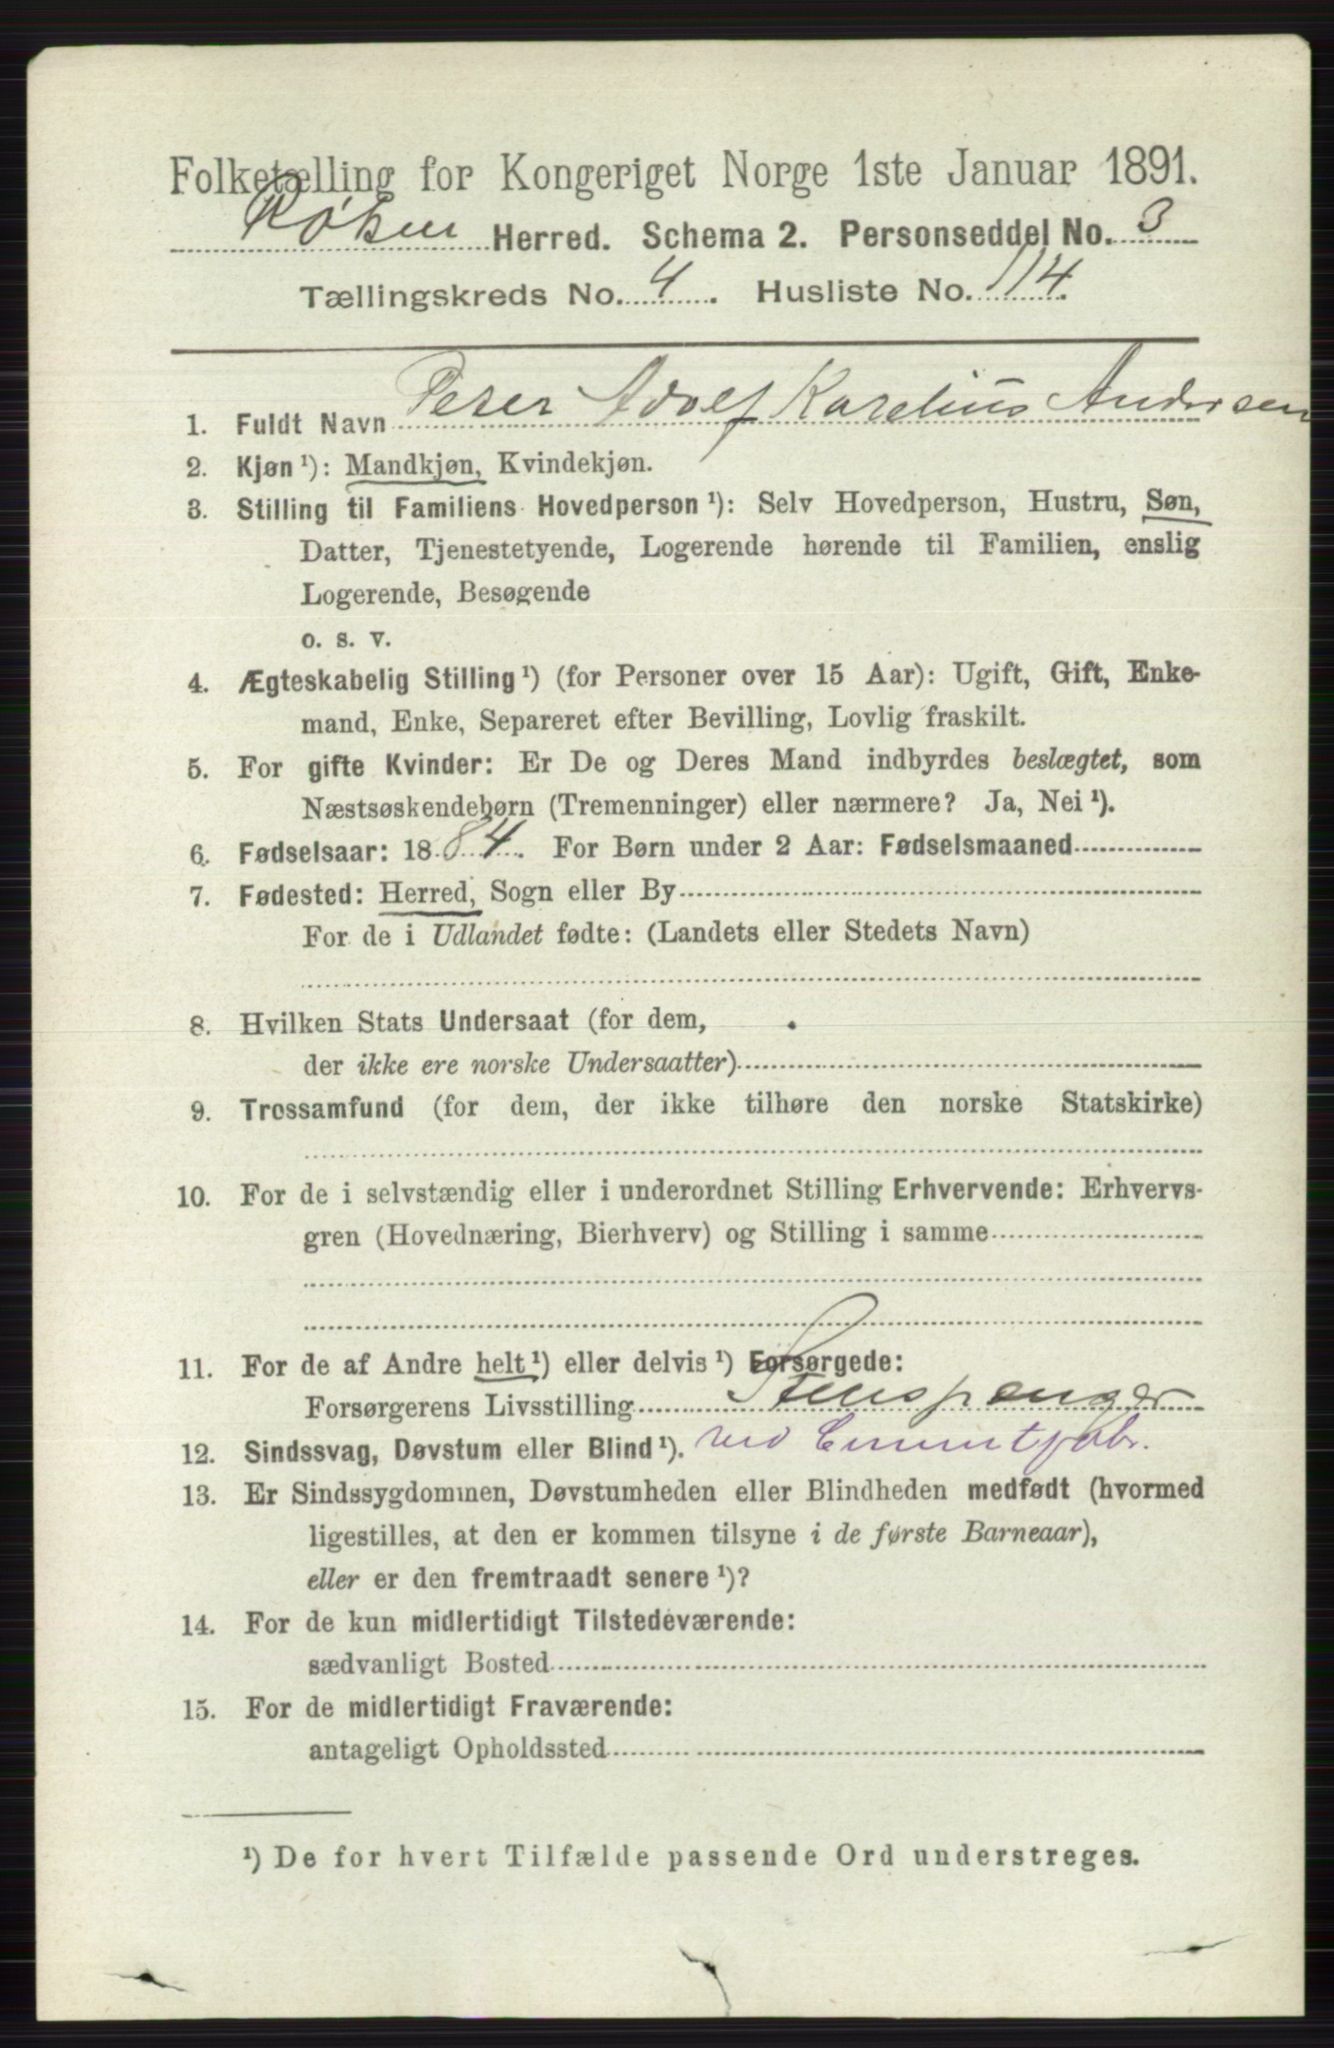 Folketælling for Kongeriget Norge 1ste Januar 1891.
Røken Herred. Schema 2. Personseddel No. 3
Tællingskreds No. 4. Husliste No. 114.
1. Fuldt Navn Peter Adolf Karelius Andersen
2. Kjøn ¹): Mandkjøn, Kvindekjøn.
3. Stilling til Familiens Hovedperson ¹): Selv Hovedperson, Hustru, Søn,
Datter, Tjenestetyende, Logerende hørende til Familien, enslig
Logerende, Besøgende
o. s. v.
4. Ægteskabelig Stilling ¹) (for Personer over 15 Aar): Ugift, Gift, Enke-
mand, Enke, Separeret efter Bevilling, Lovlig fraskilt.
5. For gifte Kvinder: Er De og Deres Mand indbyrdes beslægtet, som
Næstsøskendebørn (Tremenninger) eller nærmere? Ja, Nei ¹).
6. Fødselsaar: 1884. For Børn under 2 Aar: Fødselsmaaned
7. Fødested: Herred, Sogn eller By
For de i Udlandet fødte: (Landets eller Stedets Navn)
8. Hvilken Stats Undersaat (for dem,
der ikke ere norske Undersaatter)
9. Trossamfund (for dem, der ikke tilhøre den norske Statskirke)
10. For de i selvstændig eller i underordnet Stilling Erhvervende: Erhvervs-
gren (Hovednæring, Bierhverv) og Stilling i samme
11. For de af Andre helt ¹) eller delvis ¹) Forsørgede:
Forsørgerens Livsstilling Stenspænger
12. Sindssvag, Døvstum eller Blind ¹). ved Cementfabr.
13. Er Sindssygdommen, Døvstumheden eller Blindheden medfødt (hvormed
ligestilles, at den er kommen tilsyne i de første Barneaar),
eller er den fremtraadt senere ¹)?
14. For de kun midlertidigt Tilstedeværende:
sædvanligt Bosted
15. For de midlertidigt Fraværende:
antageligt Opholdssted
¹) De for hvert Tilfælde passende Ord understreges.